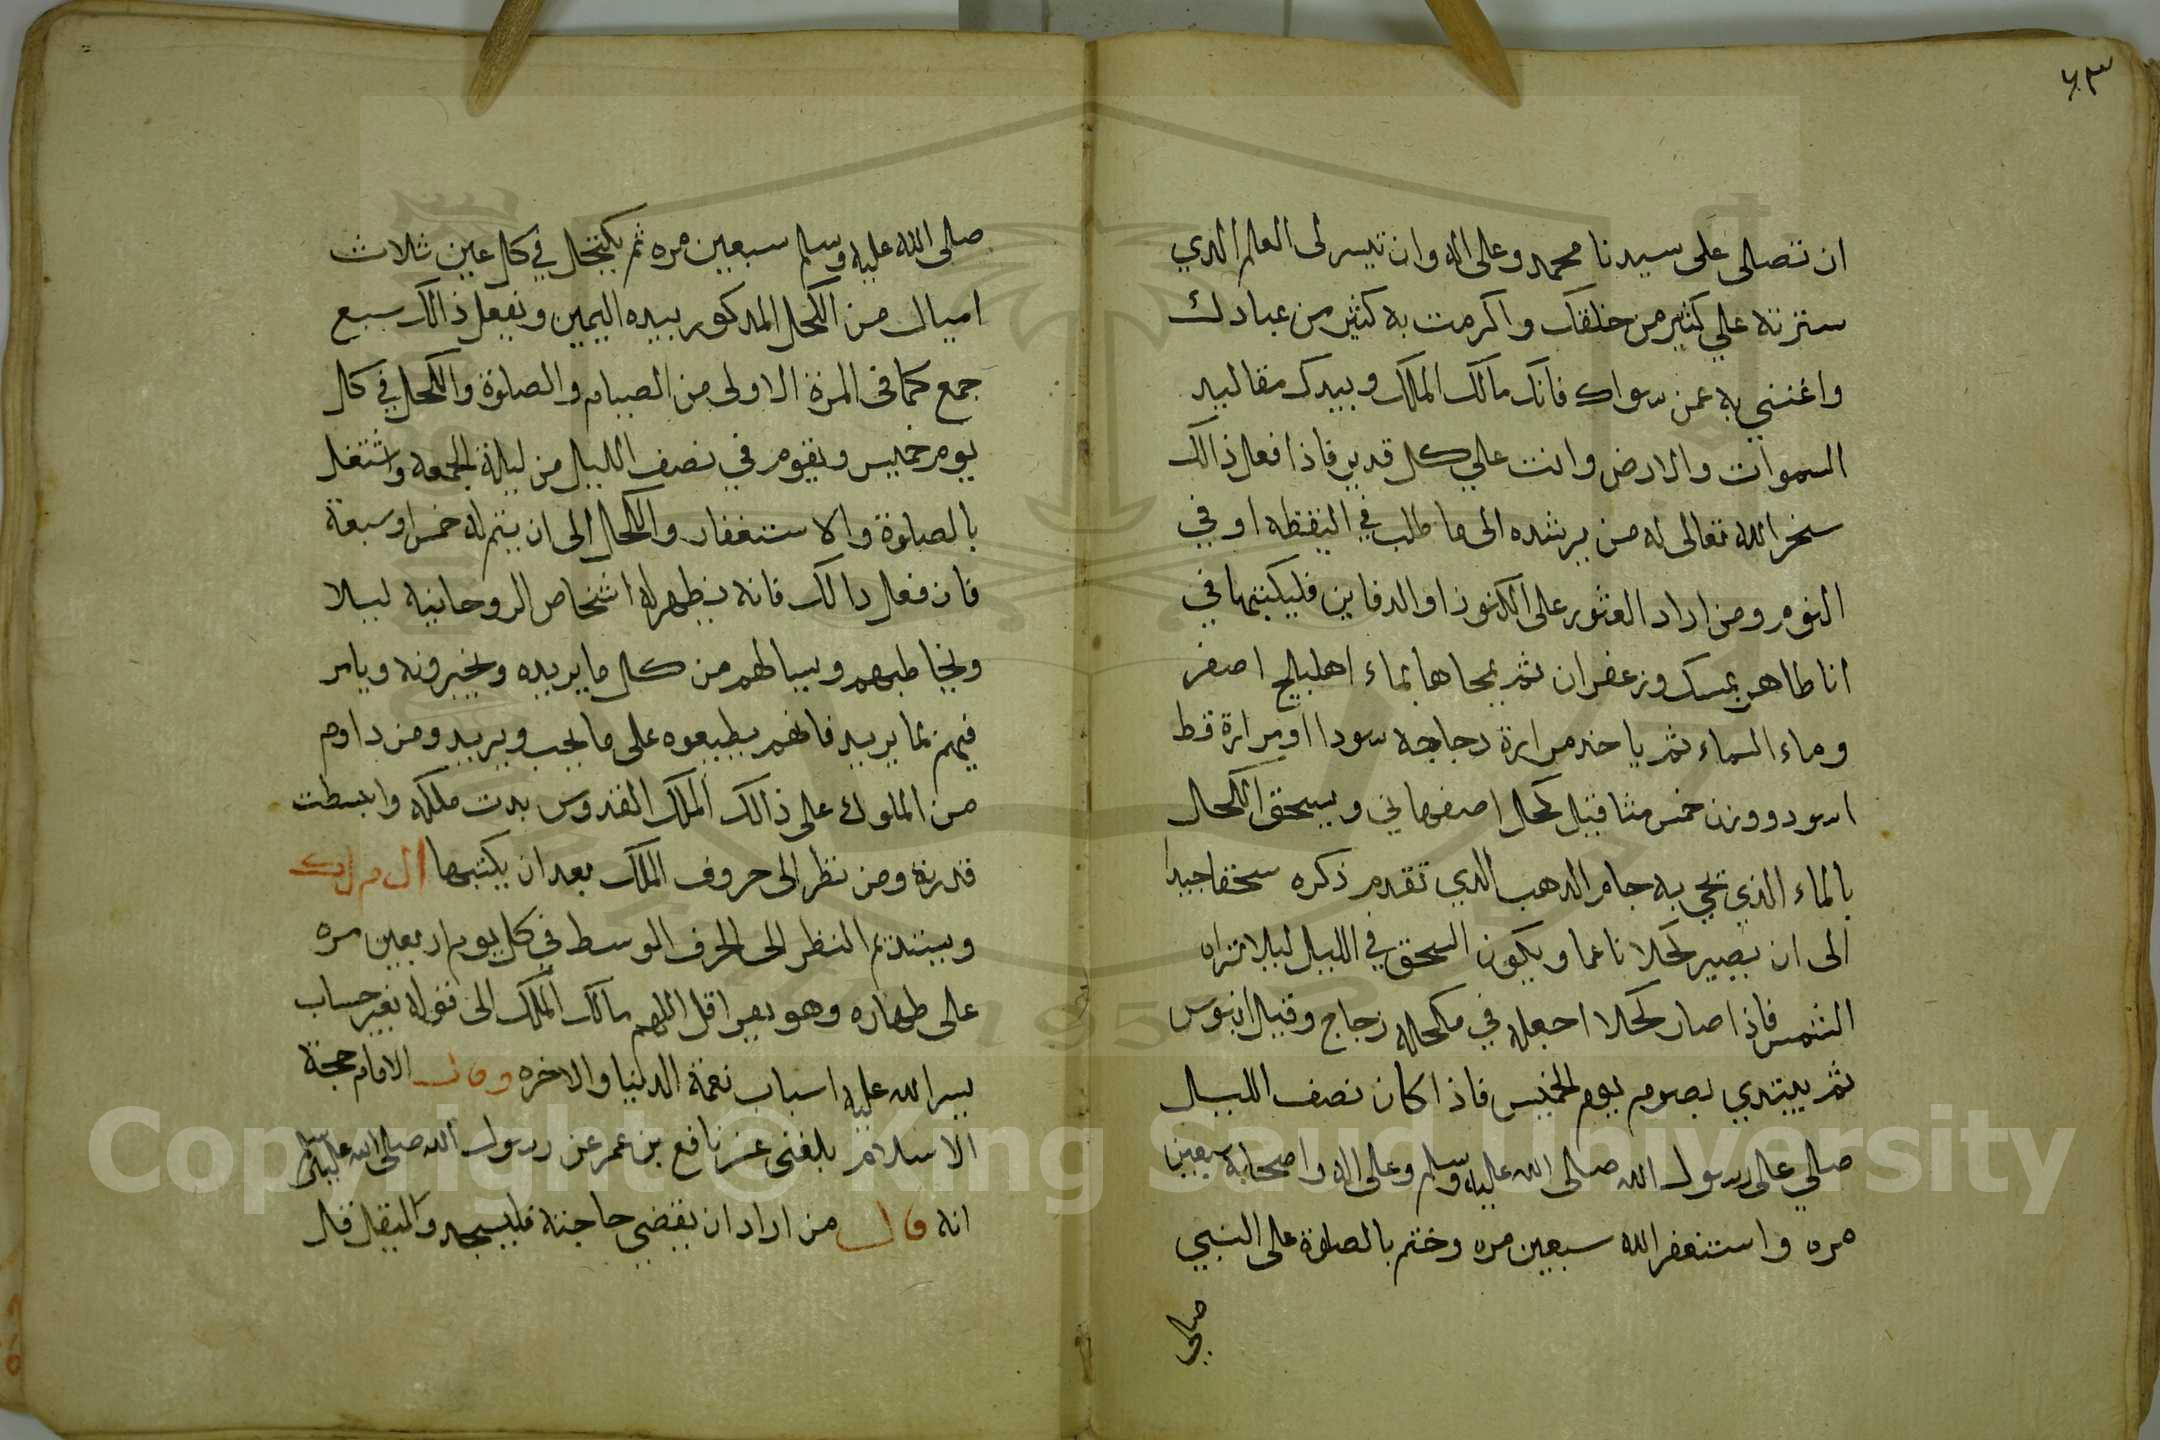 ٦٣
ان تصلى على سيدنا محمد وعلى اله وان تيسر لى العلم الدي
سترته علي كثير من خلقك واكرمت به كثير من عبادك
واغنني به عمن سواك فانك مالك الملك وبيدك مقاليد
السموات والارض وانت علي كل قدير فاذا فعل ذالك
سخر الله تعالى له من يرشده الى ما طلب في اليقظه او في
النوم ومن اراد العثور على الكنوز او الدفاين فليكتبها في
انا طاهر بمسك وزعفران ثم يمحاها بماء اهليلج اصفر
وماء السماء ثم ياخد مرارة دجاجه سودا او مرارة قط
اسود ووزن خمس مثاقيل كحل اصفهاني ويسحق الكحل
بالماء الذي محي به جام الدهب الدي تقدم ذكره سحقا جيدا
الى ان يصير كحلا ناعما ويكون السحق في الليل ليلا تراه
الشمس فاذا صار كحلا اجعله في مكحله زجاج وقيل ابنوس
ثم يبتدي بصوم يوم الخميس فاذا كان نصف الليل
صلي على رسول الله صلى الله عليه وسلم وعلى اله واصحابه سبعين
مره واستغفر الله سبعين مره وختم بالصلوة على النبي
صلي
صلى الله عليه وسلم سبعين مره ثم يكتحل في كل عين ثلاث
اميال من الكحل المدكور بيده اليمين ويفعل ذالك سبع
جمع كما فى المرة الاولى من الصيام والصلوة والكحل في كل
يوم خميس ويقوم في نصف الليل من ليلة الجمعه واشتغل
بالصلوة والاستغفار والكحل الى ان يتم له خمس او سبعة
فان فعل دالك فانه يظهر له اشخاص الروحانيه ليلا
ويخاطبهم ويسالهم من كل ما يريده ويخبرونه ويامر
فيهم بما يريد فانهم يطيعوه على ما يحب ويريد ومن داوم
من الملوك على ذالك الملك القدوس بدت ملكه وانبسطت
قدرته ومن نظر الى حروف الملك بعد ان يكتبها ال م ل ك
ويستديم النظر الى الحرف الوسط في كل يوم اربعين مره
على طهاره وهو يقرا قل اللهم مالك الملك الى قوله بغير حساب
يسر الله عليه اسباب نعمة الدنيا والاخره وقال الامام حجة
الاسلام بلغنى عن نافع بن عمر عن رسول الله صلى الله عليه وسلم
انه قال من اراد ان يقضي حاجته فليسجد وليقل قال
Copyright © King Saud University